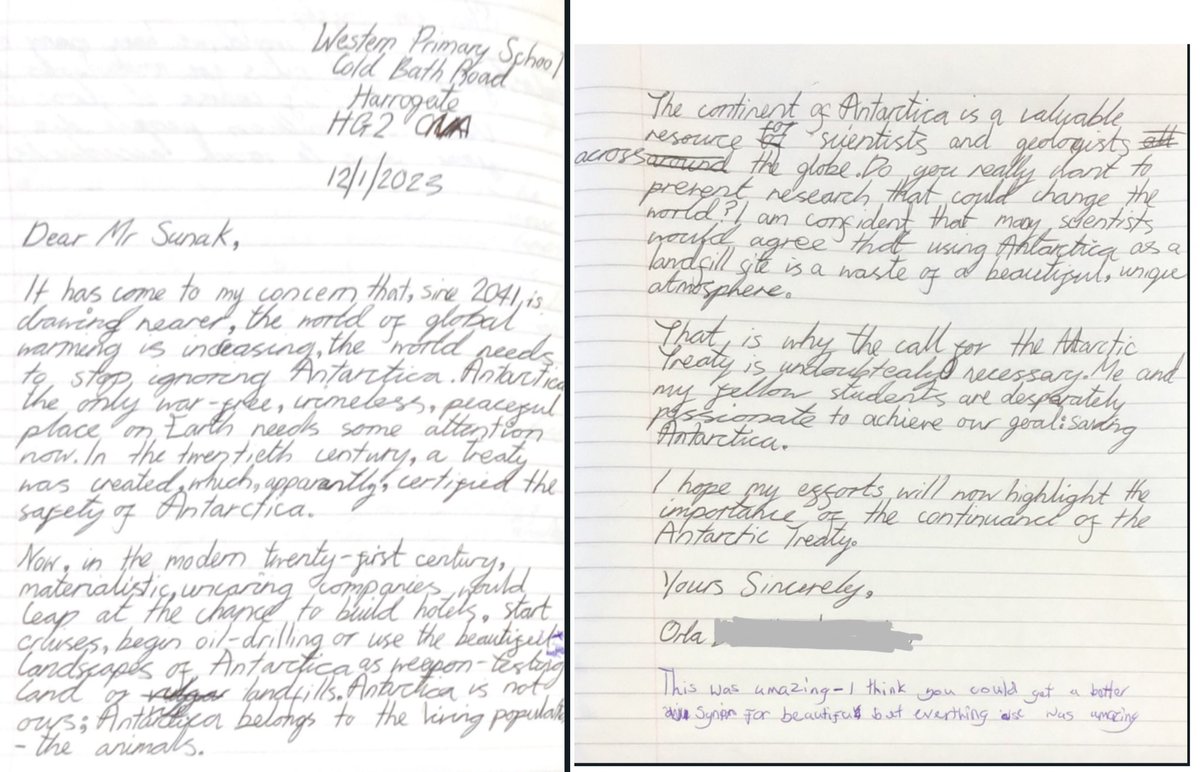 Western Primary School
Cold Bath Road
Harrogate
HG2
12/1/2023
Dear Mr Sunak,
It has come to my concern that, sine 2041, is
drawing nearer, the world of global
warming is increasing, the world needs
to stop ignoring Antarctica. Antarctica
the only war-free, crimeless, peaceful
place on Earth needs some attention
now. In the twentieth century, a treaty
was created, which, apparantly, certified the
safety of Antarctica.
Now, in the modern twenty-first century,
materialistic, uncaring companies would
leap at the chance to build hotels, start
cruises, begin oil-drilling or use the beautiful
landscapes of Antarctica as weapon-testing
land or landfills. Antarctica is not
ours; Antarctica belongs to the living population
- the animals.
The continent of Antarctica is a valuable
resource for scientists and geologists
across the globe. Do you really want to
prevent research that could change the
world? I am confident that many scientists
would agree that using Antarctica as a
landfill site is a waste of a beautiful, unique
atmosphere.
That is why the call for the Antarctic
Treaty is undoubtealy necessary. Me and
my fellow students are desperately
passionate to achieve our goal: saving
Antarctica.
I hope my efforts will now highlight the
importance of the continuance of the
Antarctic Treaty.
Yours Sincerely,
Orla
This was amazing - I think you could get a better
for beautiful but everthing else was amazing